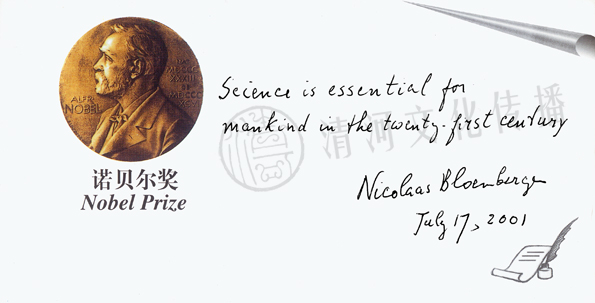 ALFR
NOBEL
诺贝尔奖
Nobel Prize
Science is essential for
mankind in the twenty-first century
清河文化传播
Nicolaas Bloembergen
July 17, 2001